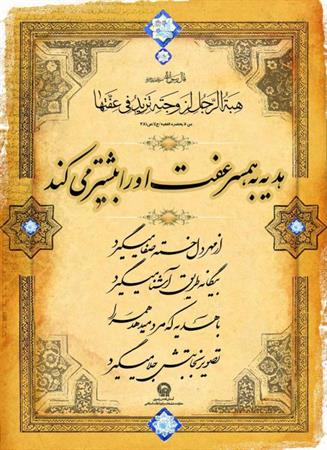 قال رسول الله
هبة الرجل لزوجته تزید فی عفتها
من لا یحضره الفقیه/ ج٤/ ص٣٨١
هدیه به همسر عفت او را بیشتر می کند
از مهر دل خسته صفا میگیرد
بیگانه طریق آشنا میگیرد
با هدیه که مرد میدهد همسر را
تصویر نجابتش جلا میگیرد